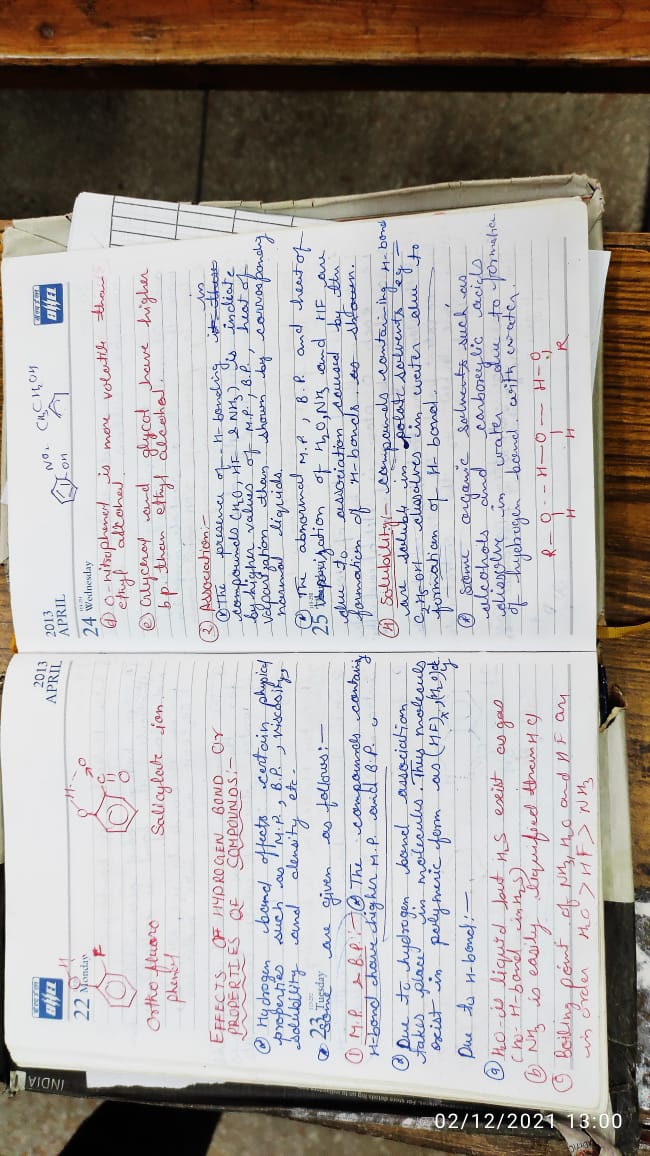 INDIA
BHEL
22 Monday
2013
APRIL
O
H
F
O
H
O
C
O
Ortho fluoro
phenol
Salicylate ion.
EFFECTS OF HYDROGEN BOND Or
PROPERTIES OF COMPOUNDS:-
Hydrogen bond affects certain physical
properties such as M.P, B.P, viscosity,
solubility and density etc.
23 Tuesday
are given as follows:-
① M.P. & B.P.:- The compounds containing
H-bond have higher M.P. and B.P.
Due to hydrogen bond association
takes place in molecules. Thus molecules
exist in polymeric form as (HF)x, (H2O)y
Due to H-bond:-
ⓐ H2O is liquid but H2S exist as gas
(no H-bond in H2S)
ⓑ NH3 is easily liquified than HCl
ⓒ Boiling point of NH3, H2O and HF are
in order H2O > HF > NH3
2013
APRIL
24 Wednesday
BHEL
NO2
OH
CH3CH2OH
ⓓ o-nitrophenol is more volatile than
ethyl alcohol.
ⓔ Glycerol and glycol have higher
bp than ethyl alcohol.
② Association:-
The presence of H-bonding in
compounds (H2O, HF & NH3) is indicate
by higher values of M.P, B.P, heat of
vaporization than shown by correspondy
normal liquids.
The abnormal M.P, B.P and heat of
25
vaporization of H2O, NH3 and HF are
due to association caused by the
formation of H-bonds as shown.
④ Solubility:- compounds containing H-bond
are soluble in polar solvents eg-
C2H5OH dissolves in water due to
formation of H-bond.
Some organic solvents such as
alcohols and carboxylic acids
dissolve in water due to formation
of hydrogen bond with water.
R-O---H-O---H-O
H H R
02/12/2021 13:00